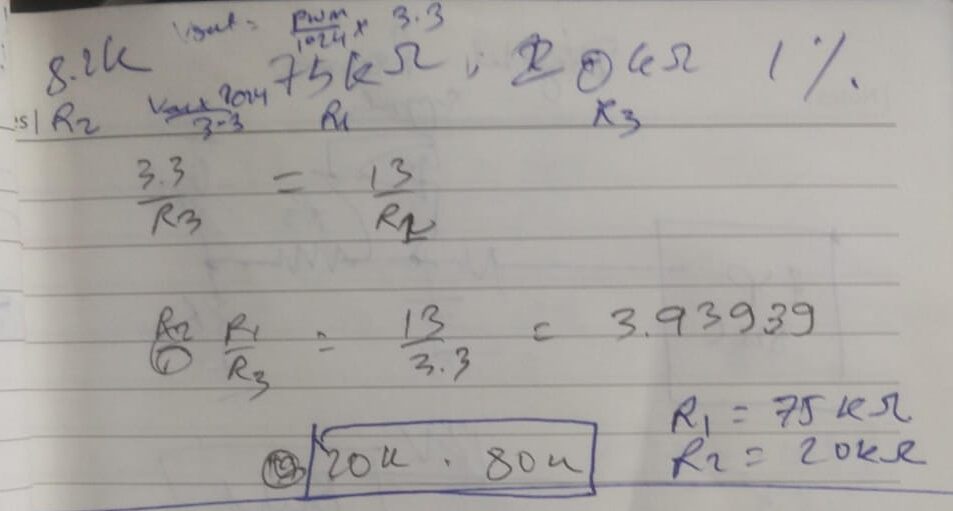 Vout = PWM/1024 × 3.3
8.2K 75kΩ, 20kΩ 1%.
R2 Vout×1024/3.3 R1 R3
3.3/R3 = 13/R2
R2 R1/R3 = 13/3.3 = 3.93939
R1 = 75kΩ
20k . 80k R2 = 20kΩ